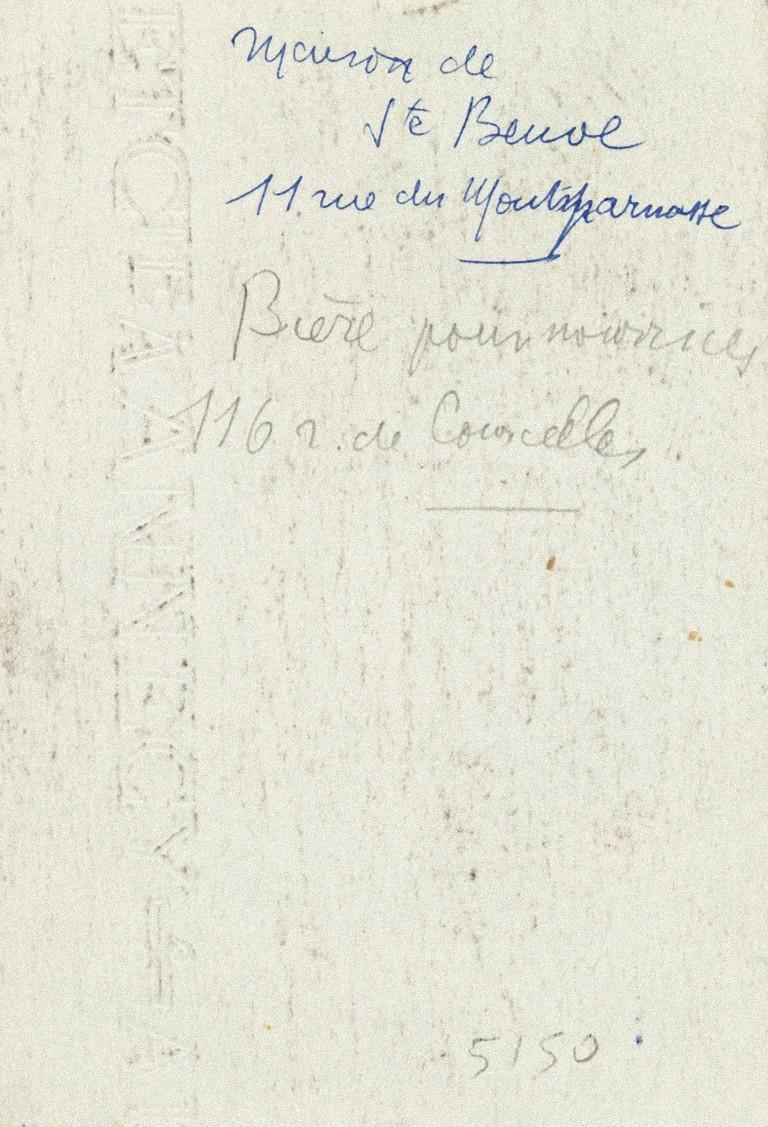 Maison de
Ste Beuve
11 rue du Montparnasse
Bière pour nourrices
116 r. de Courcelles
5150